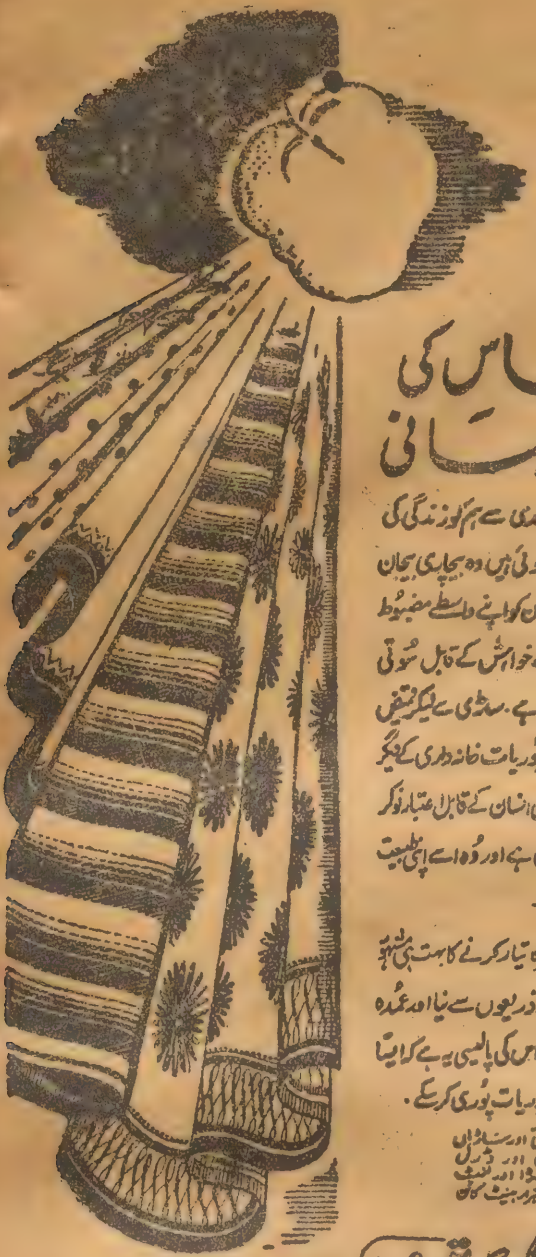 اس کی
سانی
دی سے ہم کو زندگی کی
وئی ہیں وہ بیچاری بیجان
ن کو اپنے واسطے مضبوط
خواہش کے قابل سُوتی
ہے۔ ساڑی سے لیکر نفیس
وریات خانہ داری کے دیگر
انسان کے قابل اعتبار نوکر
ہے اور وُہ اسے اپنی طبیعت
تیار کرنے کا بہت ہی مشہو
ذریعوں سے نیا اور عُمدہ
اس کی پالیسی یہ ہے کہ ایسا
وریات پُوری کرسکے۔
اور ساڑیاں
اور ڈرل
اور
کاٹن